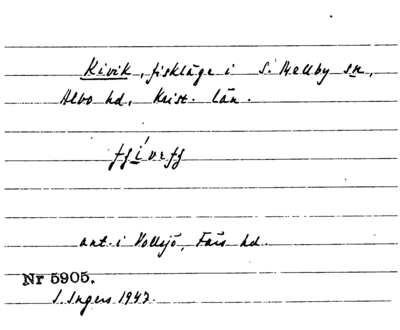 Kivik, fiskläge i S. Mellby sn,
Albo hd, Krist. län.
ant. i Vollsjö, Färs hd.
Nr 5905.
I. Ingers 1947.